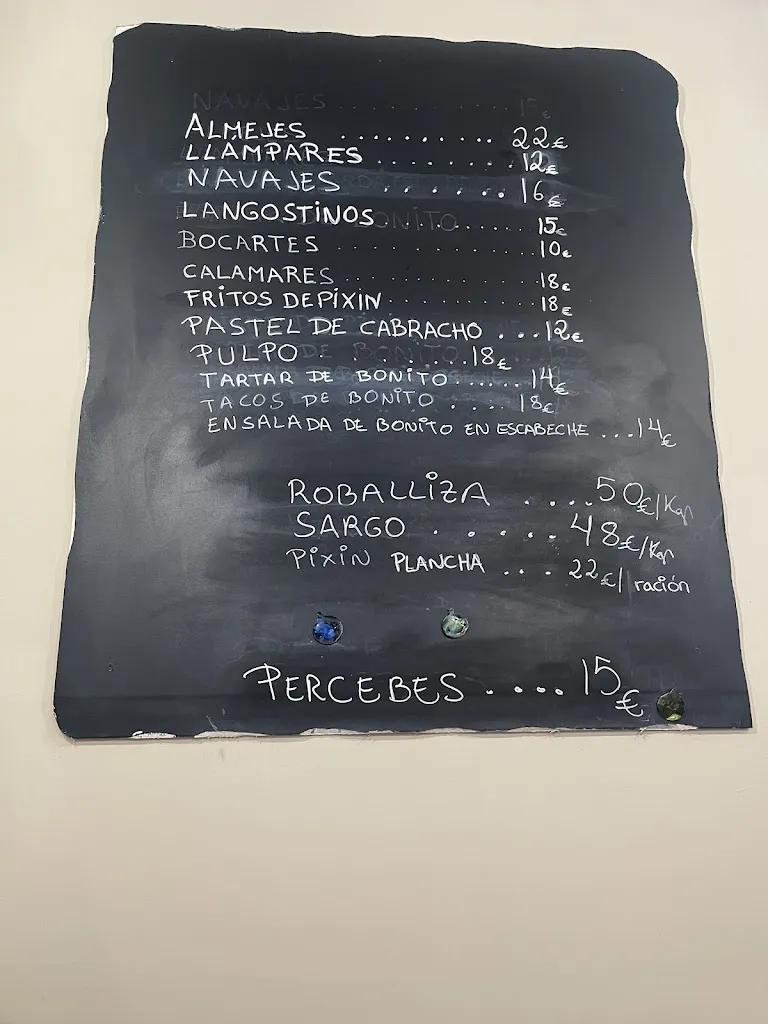 NAVAJES ............ 15€
ALMEJES .......... 22€
LLAMPARES ........ 12€
NAVAJES ....... 16€
LANGOSTINOS ...... 15€
BOCARTES ............ 10€
CALAMARES ............ 18€
FRITOS DE PIXIN ........ 18€
PASTEL DE CABRACHO ... 12€
PULPO ........ 18€
TARTAR DE BONITO ...... 14€
TACOS DE BONITO .... 18€
ENSALADA DE BONITO EN ESCABECHE ... 14€
ROBALLIZA .... 50€/Kgr
SARGO ...... 48€/Kgr
PIXIN PLANCHA ... 22€/ ración
PERCEBES .... 15€